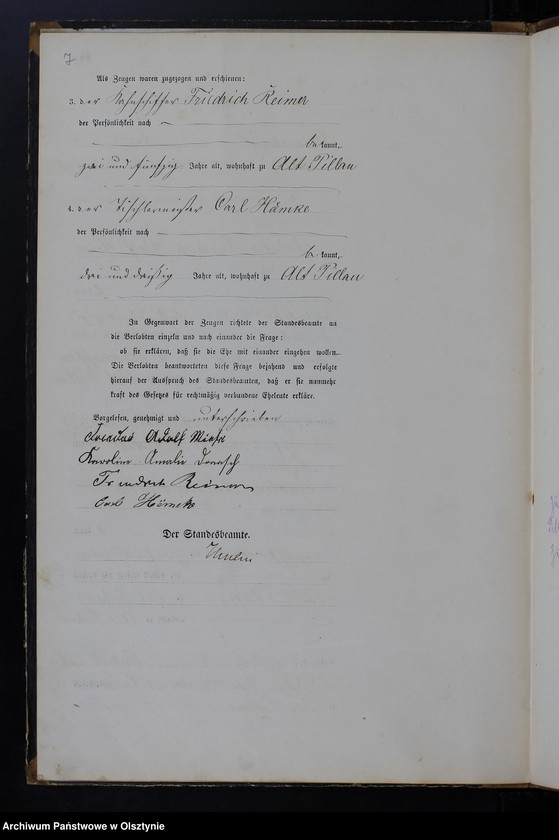 7
Als Zeugen waren zugezogen und erschienen:
3. der Kahnschiffer Friedrich Reimer
der Persönlichkeit nach
be kannt,
zwei und fünfzig Jahre alt, wohnhaft zu Alt Pillau
4. der Tischlermeister Carl Hämke
der Persönlichkeit nach
be kannt,
drei und dreißig Jahre alt, wohnhaft zu Alt Pillau
In Gegenwart der Zeugen richtete der Standesbeamte an
die Verlobten einzeln und nach einander die Frage:
ob sie erklären, daß sie die Ehe mit einander eingehen wollen.
Die Verlobten beantworteten diese Frage bejahend und erfolgte
hierauf der Ausspruch des Standesbeamten, daß er sie nunmehr
kraft des Gesetzes für rechtmäßig verbundene Eheleute erkläre.
Vorgelesen, genehmigt und unterschrieben
Adolf
Karoline Amalie
Friedrich Reimer
Carl Hämcke
Der Standesbeamte.
Archiwum Państwowe w Olsztynie